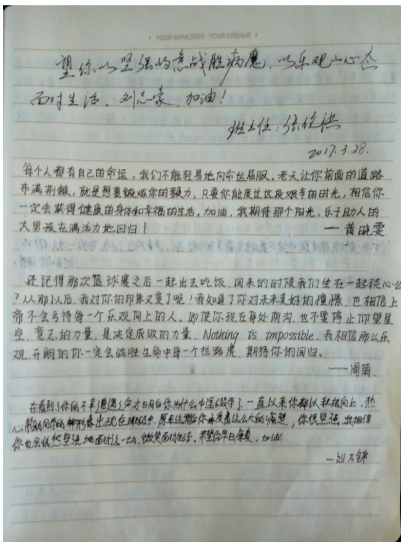 • YOUR MEMORIES · YOUR DREAMS •
望你以坚强的意战胜病魔,以乐观心态
面对生活,刘志豪,加油!
班主任:张俊洪
2017.3.28.
每个人都有自己的命运,我们不能轻易地向命运屈服,老天让你前面的道路
布满荆棘,就是想要锻炼你的毅力,只要你能度过这段艰辛的时光,相信你
一定会获得健康的身体和幸福的生活,加油,我期待那个阳光、乐于助人的
大男孩充满活力地回归!
——黄晓雯
还记得那次篮球赛之后一起出去吃饭,回来的时候我们坐在一起谈心
?从那以后,我对你的印象又变了呢!我知道了你对未来美好的憧憬,也相信上
帝不会亏待每一个乐观向上的人,即使你现在身处崩沟,也不要停止仰望星
空,意志的力量,是决定成败的力量,Nothing is impossible,我相信那么乐
观、开朗的你一定会战胜生命中每一个拦路虎,期待你的回归。
——周茵
在看到了你的不幸遭遇之后才明白你为什么中途
一直以来你都以积极向上,热
心
你很坚强,我相信
你也会依然坚强地面对这一切,微笑面对生活,希望你早日康复,加油!